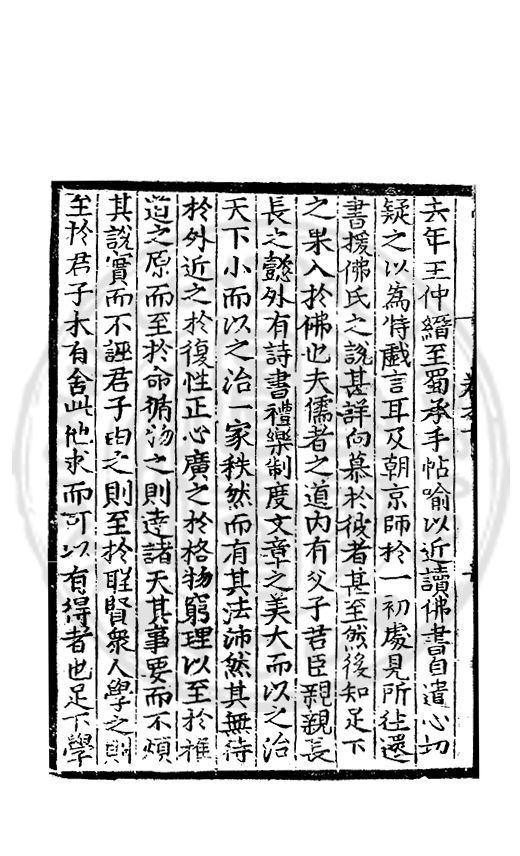 去年王仲縉至蜀承手帖喻以近讀佛書自遣心切
疑之以為特戲言耳及朝京師於一初處見所往還
書援佛氏之說甚詳向慕於彼者甚至然後知足下
之果入於佛也夫儒者之道内有父子君臣親親長
長之懿外有詩書禮樂制度文章之美大而以之治
天下小而以之治一家秩然而有其法沛然其無待
於外近之於復性正心廣之於格物窮理以至於推
道之原而至於命循物之則達諸天其事要而不煩
其說實而不誣君子由之則至於聖賢衆人學之則
至於君子未有舍此他求而可以有得者也足下學